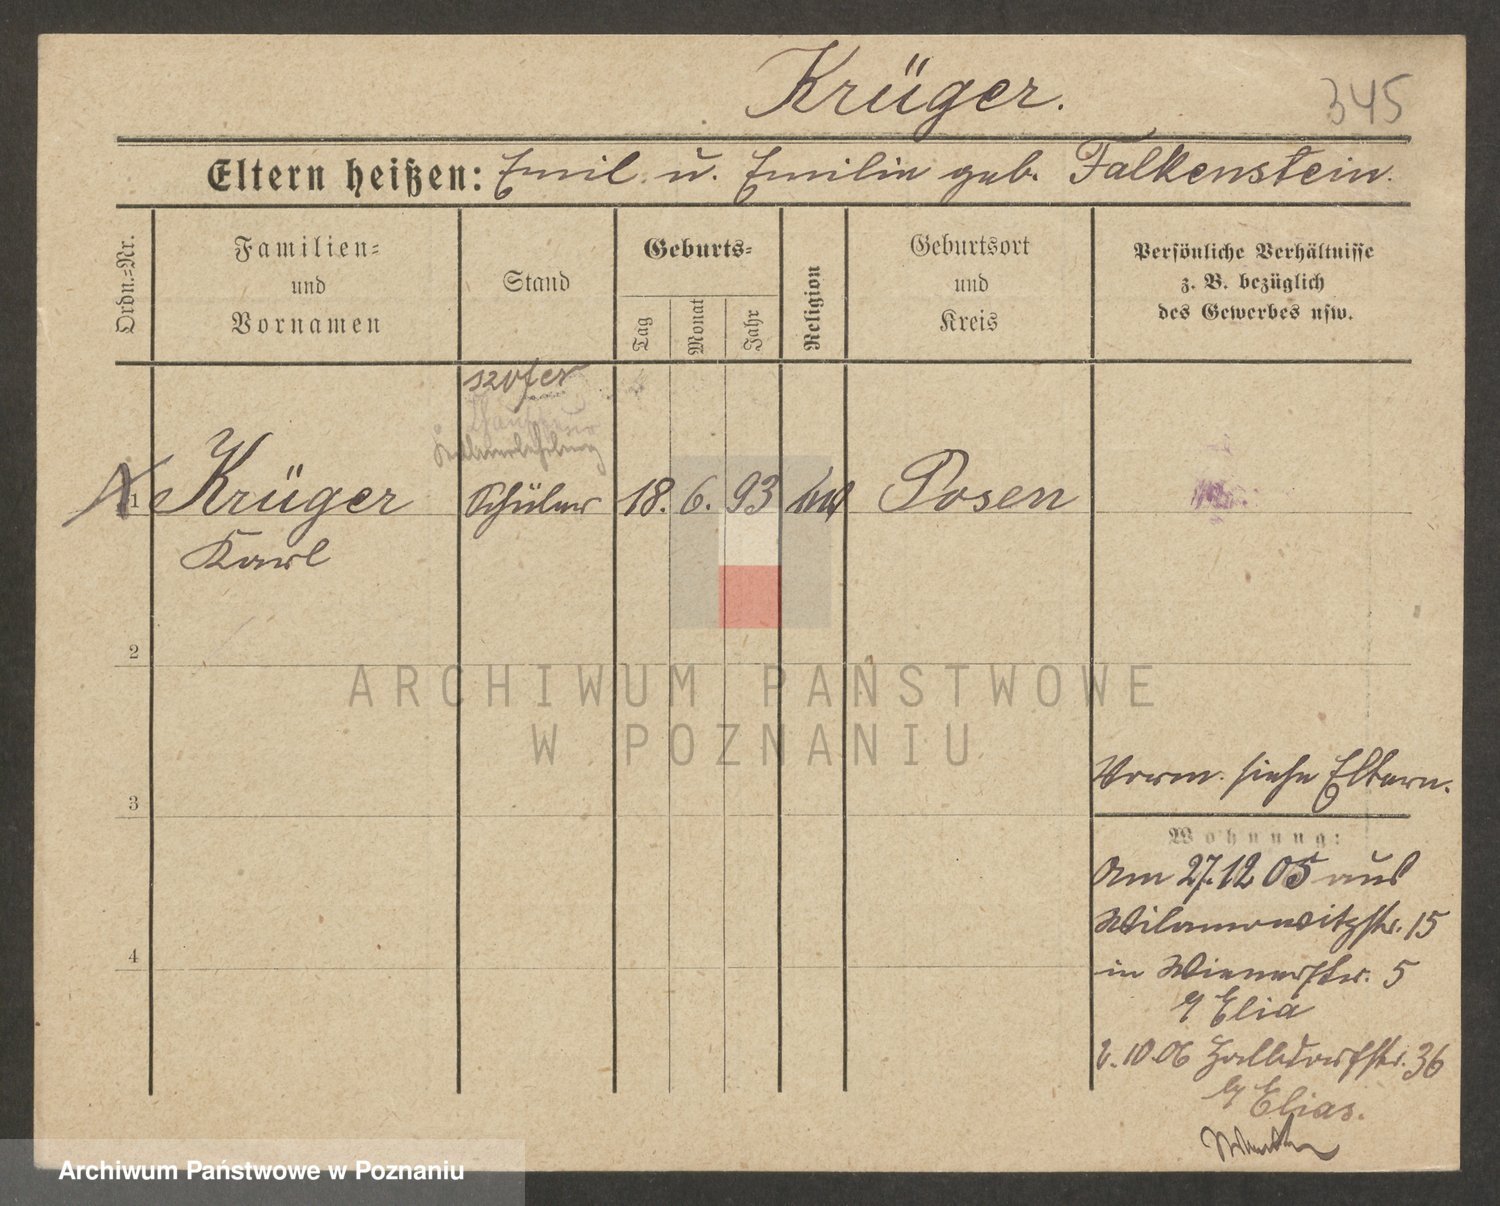 Krüger.
345
Eltern heißen: Emil u. Emilie geb. Falkenstein.
Ordn.=Nr.
Familien=
und
Vornamen
Stand
Geburts=
Tag
Monat
Jahr
Religion
Geburtsort
und
Kreis
Persönliche Verhältnisse
z. B. bezüglich
des Gewerbes usw.
szofer
1 Krüger Schüler 18. 6. 93 Posen
Karl
2
ARCHIWUM PAŃSTWOWE
W POZNANIU
Vorm. siehe Eltern.
3
Wohnung:
Am 27.12 05 aus
Wilamowitzstr. 15
4
in Wienerstr. 5
Elia
2.10.06 Halldorfstr. 36
Elias.
Archiwum Państwowe w Poznaniu